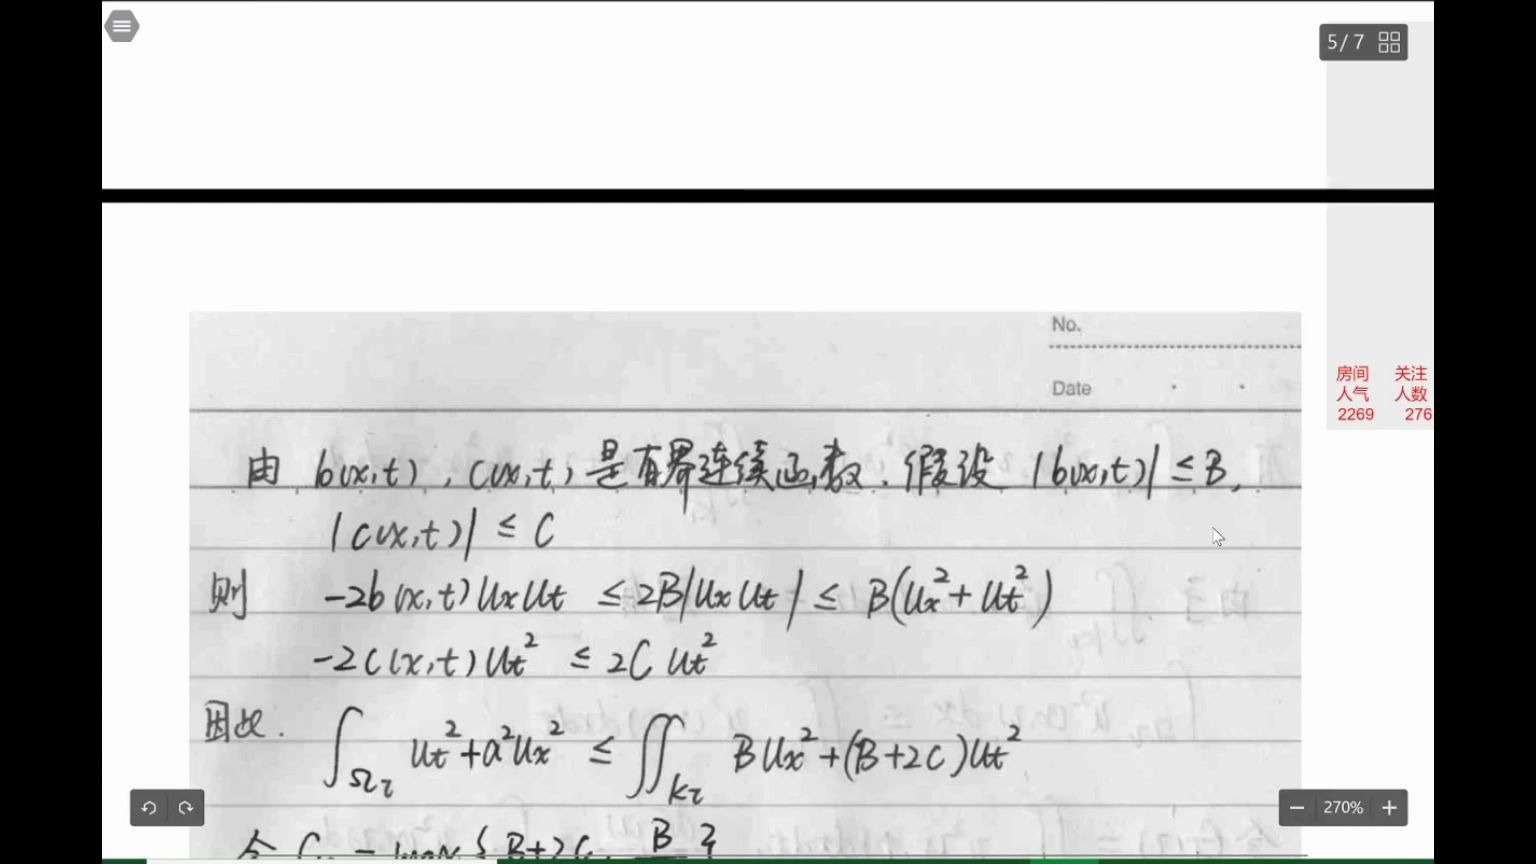 5/7
No.
Date
房间 关注
人气 人数
2269 276
由 b(x,t), c(x,t) 是有界连续函数. 假设 |b(x,t)| ≤ B,
|c(x,t)| ≤ C
则 -2b(x,t)UxUt ≤ 2B|UxUt| ≤ B(Ux²+Ut²)
-2C(x,t)Ut² ≤ 2C Ut²
因此. ∫_Ωτ Ut²+a²Ux² ≤ ∬_Kτ BUx²+(B+2C)Ut²
令 = max{B+2C, B
270%